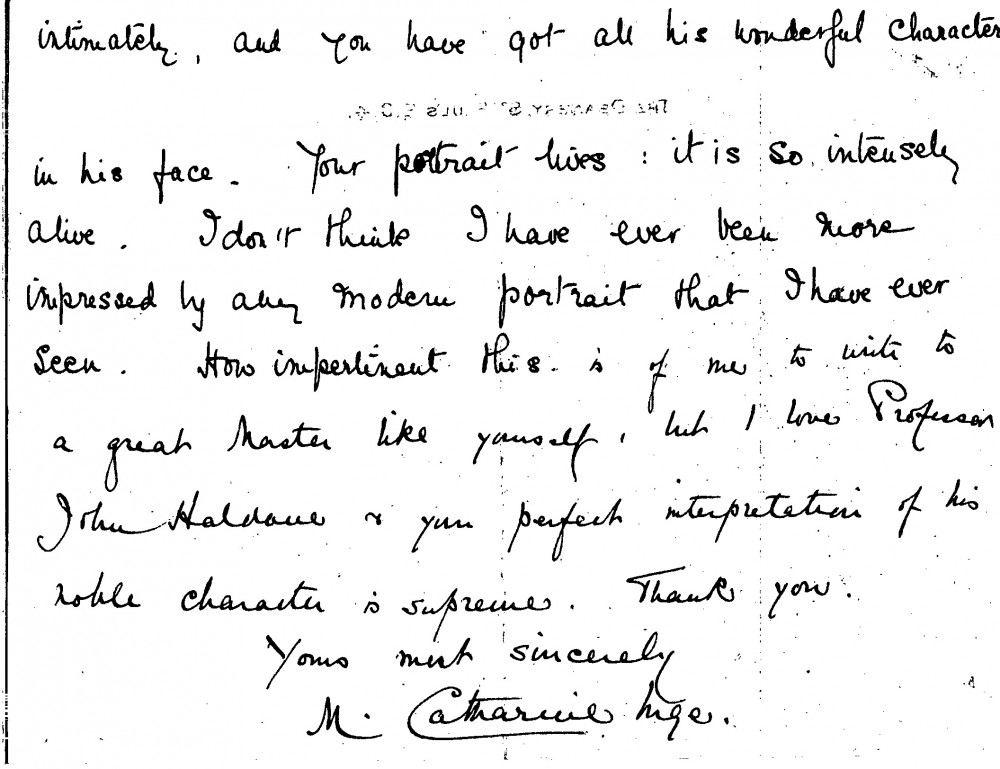 intimately, and you have got all his wonderful character
THE DEANERY, ST PAUL'S E.C.4.
in his face. Your portrait lives : it is so intensely
alive. I don't think I have ever been more
impressed by any modern portrait that I have ever
seen. How impertinent this is of me to write to
a great Master like yourself, but I love Professor
John Haldane & your perfect interpretation of his
noble character is supreme. Thank you.
Yours most sincerely
M. Catharine Inge.